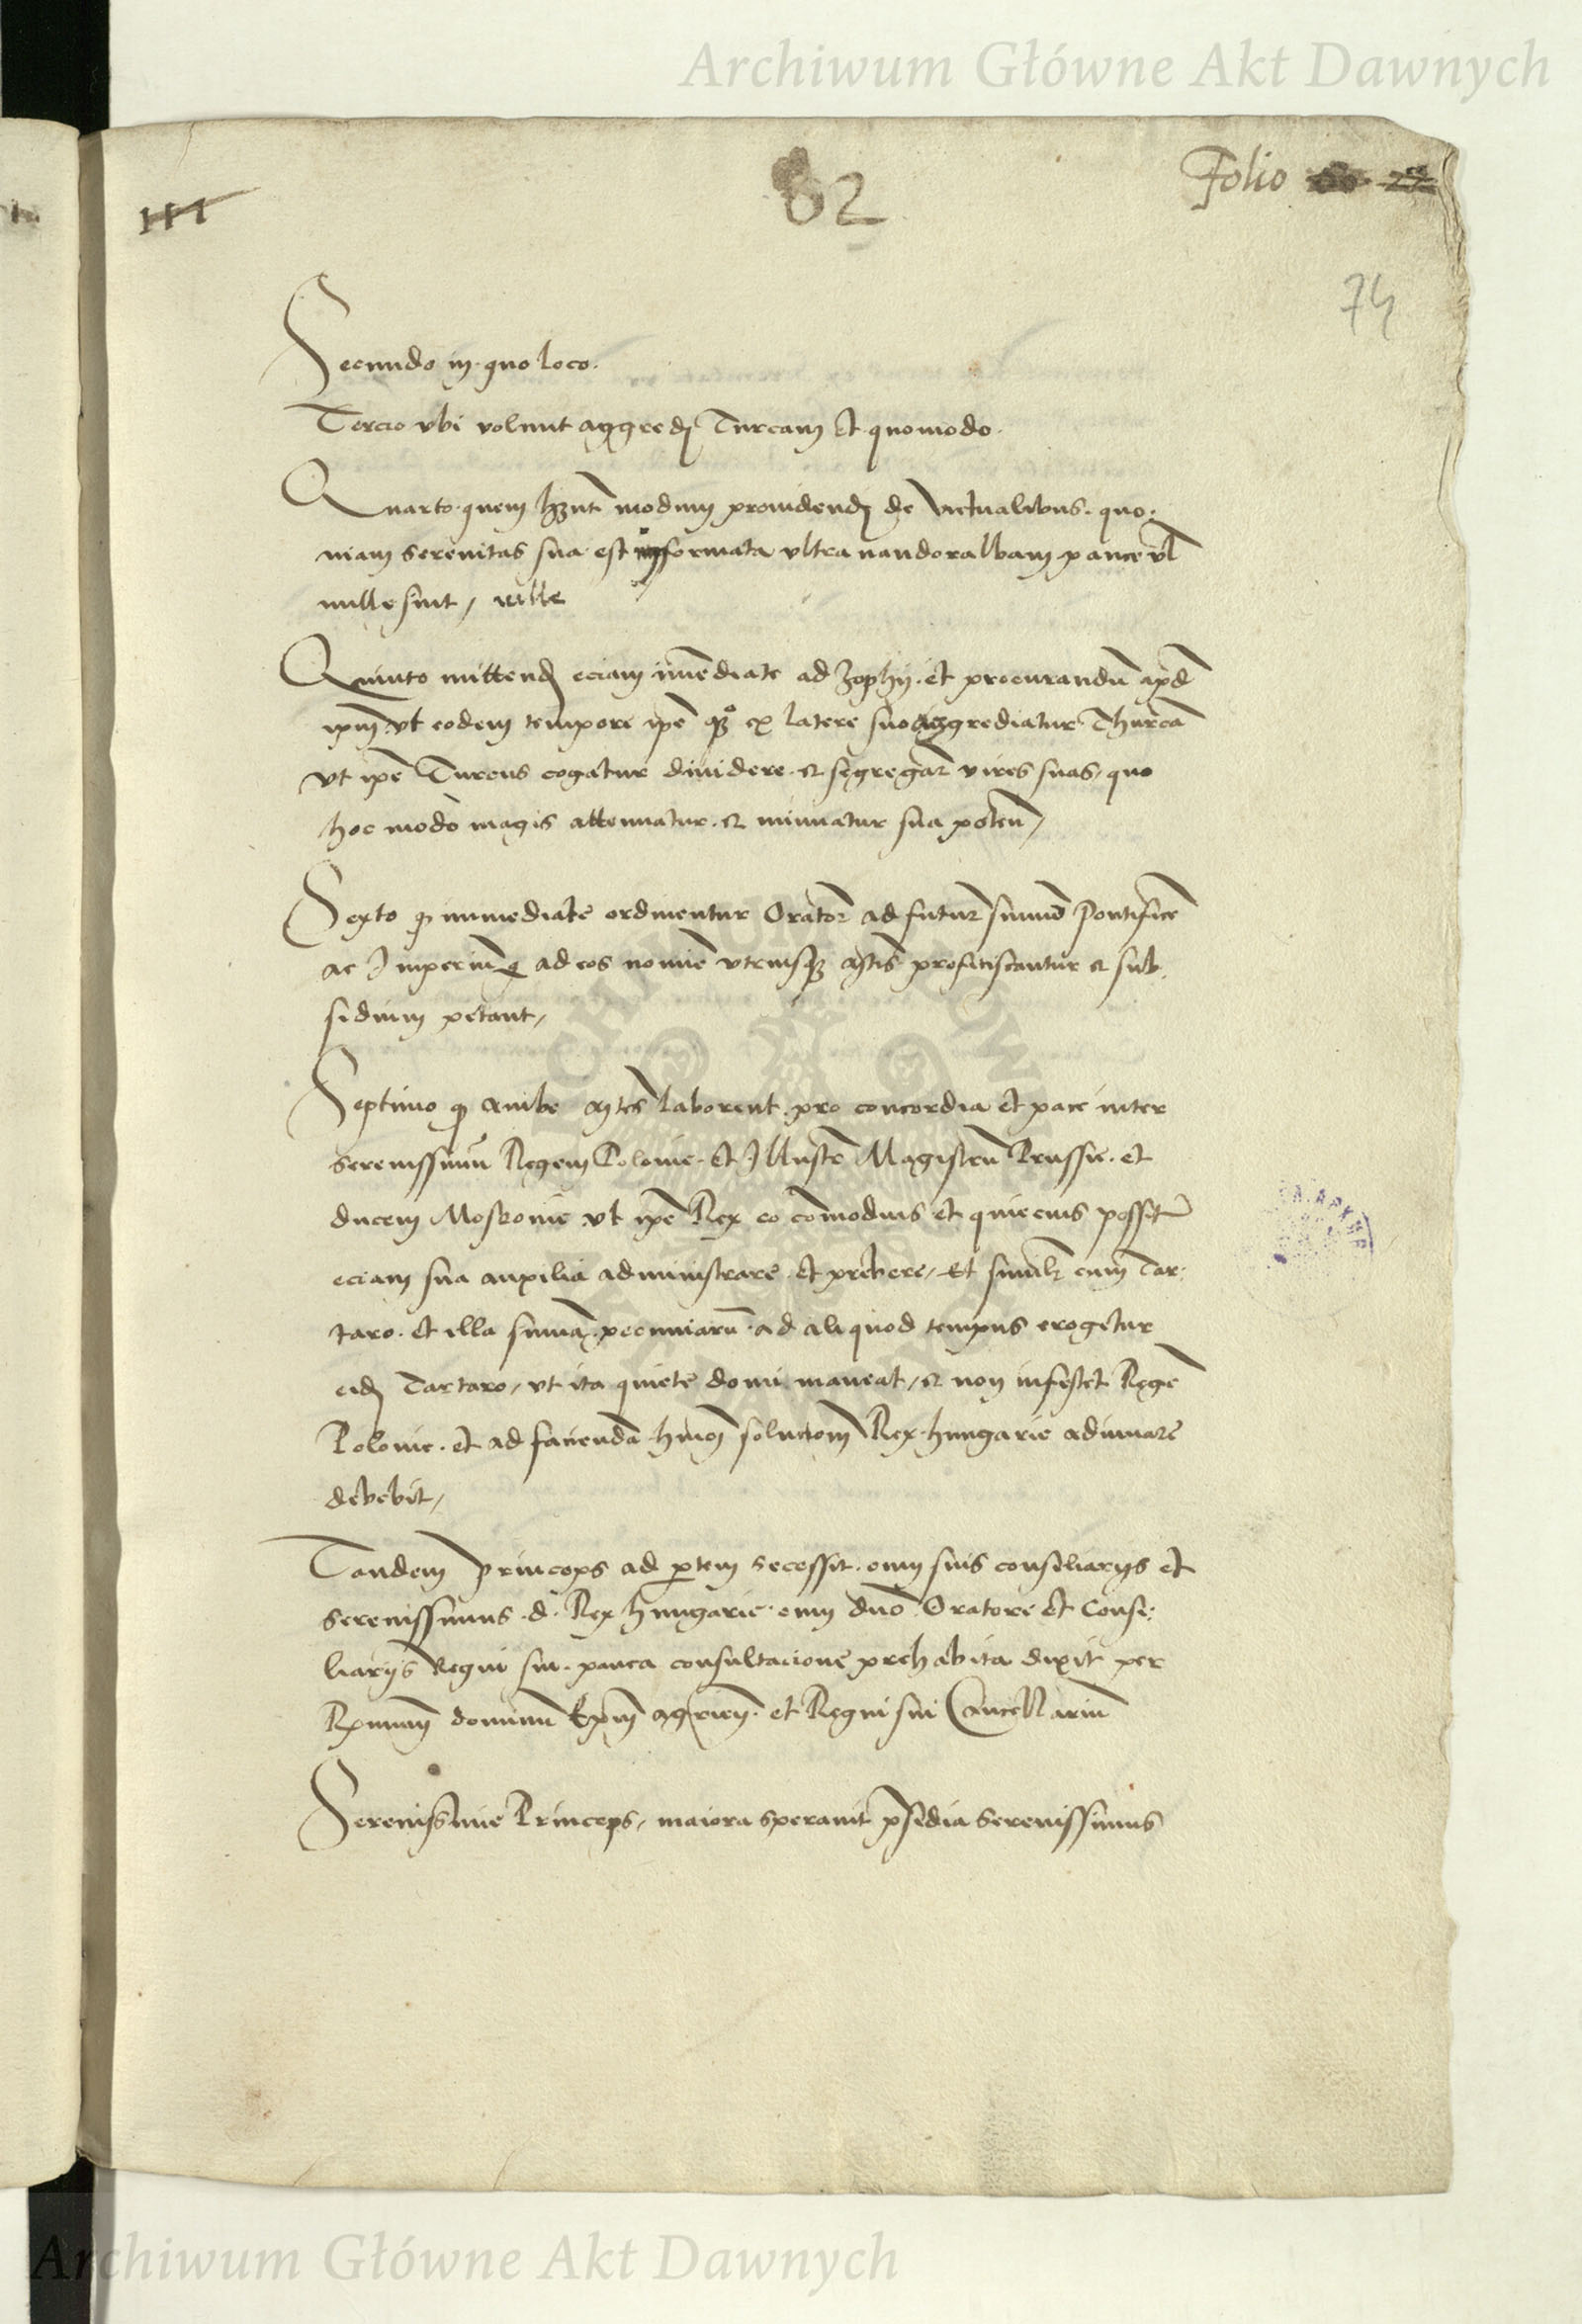 Archiwum Główne Akt Dawnych
Folio
82
III
74
Secundo in quo loco.
Tercio vbi volunt aggredj Turcam et quomodo.
Quarto quem hnt modum prouidendj de victualibus. quo:
niam serenitas sua est informata vltra nandoralbam pauce vl
nulle sint, ville
Quinto mittendj eciam imediate ad Zophij. et procurandu apd
ipm. vt eodem tempore ipe ex latere suo aggrediatur Thurca
vt ipe Turcus cogatur diuidere. et segregar vires suas, quo
hoc modo magis attenuatur. et minuatur sua poten,
Sexto immediate ordinentur Orator ad futur sumu Pontifice
ac Imperium ad eos nomine vtriusq ptis proficiscantur et sub:
sidium petant,
Septimo q ambe ptes laborent pro concordia et pace inter
serenissimu Regem Polonie. et Illustre Magistru Prussie. et
ducem Moskouie vt ipe Rex eo comodius et quiecius possit
eciam sua auxilia administrare et prebere, Et similr cum Tar:
taro. et illa suma pecuniaru ad aliquod tempus erogetur
eidj Tartaro, vt ita quiete domi maneat, et non infestet Rege
Polonie. et ad facienda hmoj solucionem Rex hungarie adiuuare
debebit,
Tandem Princeps ad ptem secessit. cum suis consiliarijs et
serenissimus d. Rex hungarie cum dno Oratore et Consi:
liarijs Regni sui. pauca consultacione prehabita dixit per
Rmum dominu Epm agrien. et Regni sui Cancellariu
Serenissime Princeps, maiora sperauit psidia serenissimus
Archiwum Główne Akt Dawnych